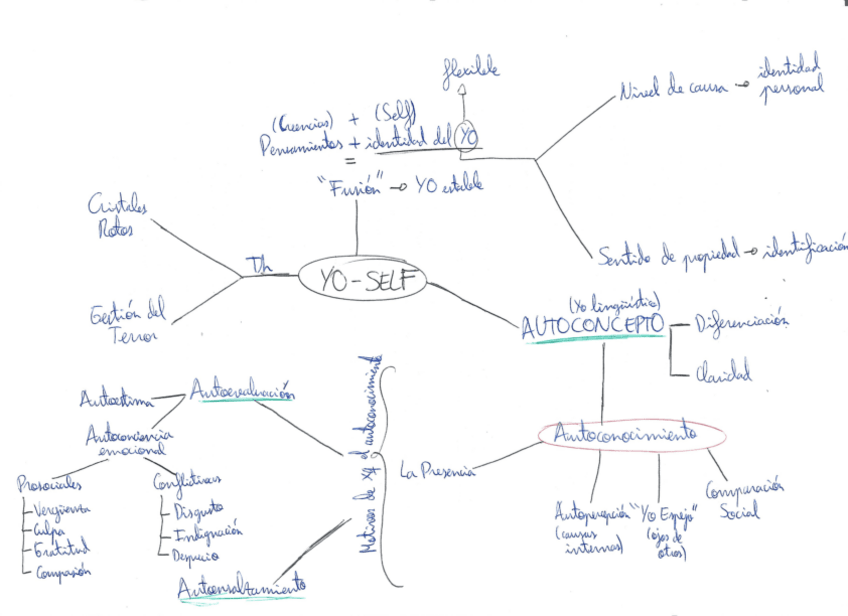 flexible
(Creencias) + (Self)
Pensamientos + identidad del YO
=
"Fusión" → YO estable
Nivel de causa → identidad
personal
Sentido de propiedad → identificación
Cristales
Rotos
Th
YO-SELF
Gestión del
Terror
(Yo lingüístico)
AUTOCONCEPTO
Diferenciación
Claridad
Autoconocimiento
La Presencia
Autopercepción
(causas
internas)
"Yo Espejo"
(ojos de
otros)
Comparación
Social
Motivos de xq el autoconocimiento
Autoevaluación
Autoestima
Autoconciencia
emocional
Prosociales
Vergüenza
Culpa
Gratitud
Compasión
Conflictivas
Disgusto
Indignación
Desprecio
Autoensaltamiento